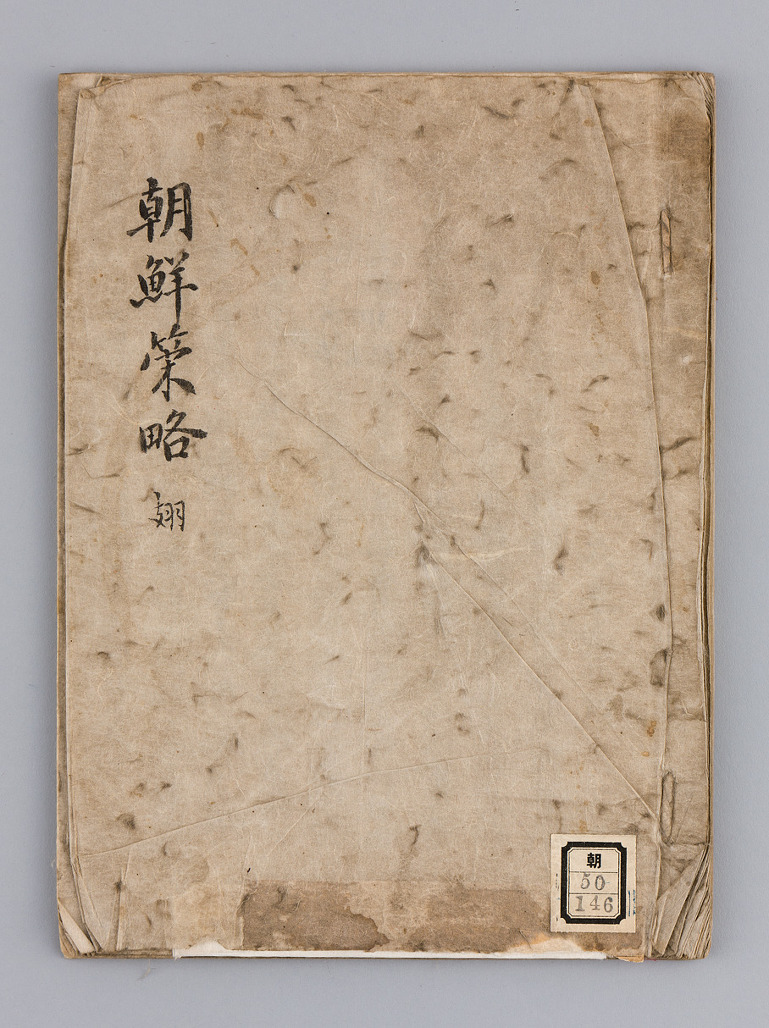 朝鮮策略
朝
50
146